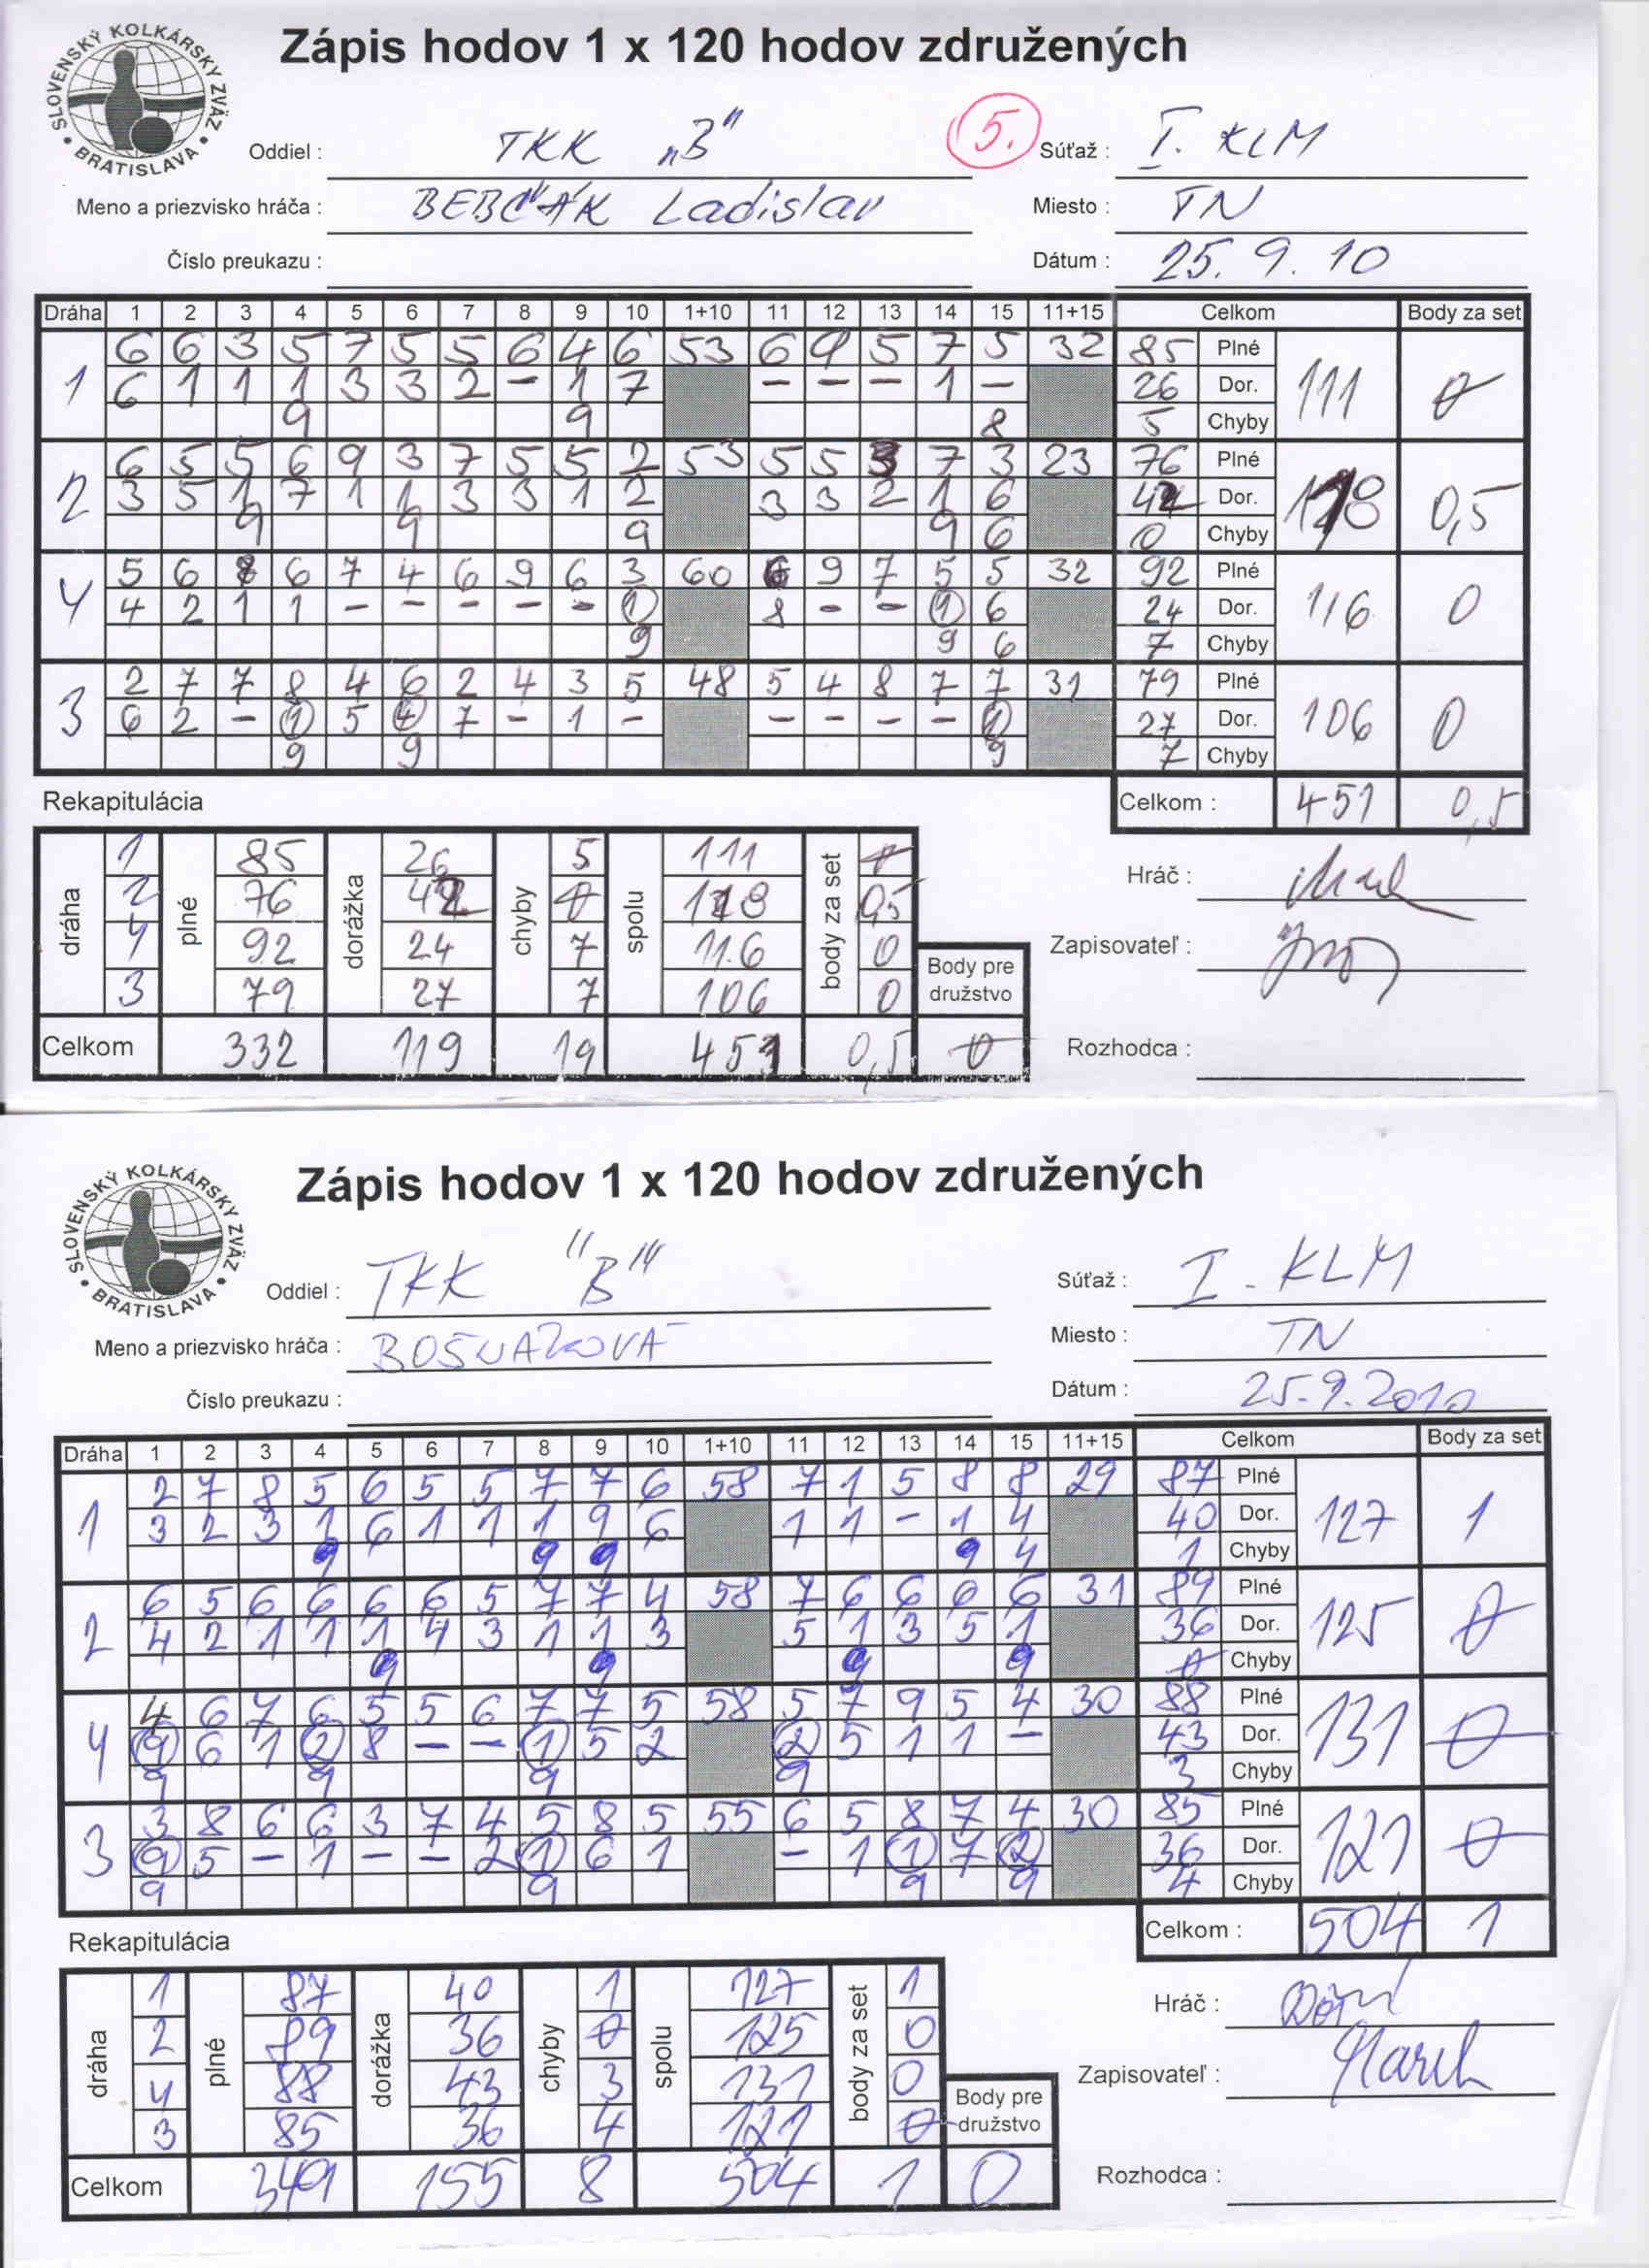 SLOVENSKÝ KOLKÁRSKY ZVÄZ • BRATISLAVA •
Zápis hodov 1 x 120 hodov združených
Oddiel : TKK „B" 5. Súťaž : I. KLM
Meno a priezvisko hráča : BEBČÁK Ladislav Miesto : TN
Číslo preukazu : Dátum : 25. 9. 10
Dráha 1 2 3 4 5 6 7 8 9 10 1+10 11 12 13 14 15 11+15 Celkom Body za set
6 6 3 5 7 5 5 6 4 6 53 6 9 5 7 5 32 85 Plné
1 6 1 1 1 3 3 2 – 1 7 – – – 1 – 26 Dor. 111 0
9 9 8 5 Chyby
6 5 5 6 9 3 7 5 5 2 53 5 5 3 7 3 23 76 Plné
2 3 5 1 7 1 1 3 3 1 2 3 3 2 1 6 42 Dor. 118 0,5
9 9 9 9 6 0 Chyby
5 6 8 6 7 4 6 9 6 3 60 6 9 7 5 5 32 92 Plné
4 4 2 1 1 – – – – – 1 8 – – 1 6 24 Dor. 116 0
9 9 6 7 Chyby
2 7 7 8 4 6 2 4 3 5 48 5 4 8 7 7 31 79 Plné
3 6 2 – 1 5 4 7 – 1 – – – – – 1 27 Dor. 106 0
9 9 9 7 Chyby
Rekapitulácia Celkom : 451 0,5
dráha plné dorážka chyby spolu body za set
1 85 26 5 111 0
2 76 42 0 118 0,5
4 92 24 7 116 0
3 79 27 7 106 0
Body pre družstvo
Celkom 332 119 19 451 0,5 0
Hráč :
Zapisovateľ :
Rozhodca :
SLOVENSKÝ KOLKÁRSKY ZVÄZ • BRATISLAVA •
Zápis hodov 1 x 120 hodov združených
Oddiel : TKK "B" Súťaž : I. KLM
Meno a priezvisko hráča : BOŠNAKOVÁ Miesto : TN
Číslo preukazu : Dátum : 25.9.2010
Dráha 1 2 3 4 5 6 7 8 9 10 1+10 11 12 13 14 15 11+15 Celkom Body za set
2 7 8 5 6 5 5 7 7 6 58 7 1 5 8 8 29 87 Plné
1 3 2 3 1 6 1 1 1 9 6 1 1 – 1 4 40 Dor. 127 1
9 9 9 9 4 1 Chyby
6 5 6 6 6 6 5 7 7 4 58 7 6 6 6 6 31 89 Plné
2 4 2 1 1 1 4 3 1 1 3 5 1 3 5 1 36 Dor. 125 0
9 9 9 9 0 Chyby
4 6 7 6 5 5 6 7 7 5 58 5 7 9 5 4 30 88 Plné
4 9 6 1 2 8 – – 1 5 2 2 5 1 1 – 43 Dor. 131 0
9 9 9 9 3 Chyby
3 8 6 6 3 7 4 5 8 5 55 6 5 8 7 4 30 85 Plné
3 9 5 – 1 – – 2 1 6 1 – 1 1 7 2 36 Dor. 121 0
9 9 9 9 4 Chyby
Rekapitulácia Celkom : 504 1
dráha plné dorážka chyby spolu body za set
1 87 40 1 127 1
2 89 36 0 125 0
4 88 43 3 131 0
3 85 36 4 121 0
Body pre družstvo
Celkom 349 155 8 504 1 0
Hráč :
Zapisovateľ :
Rozhodca :